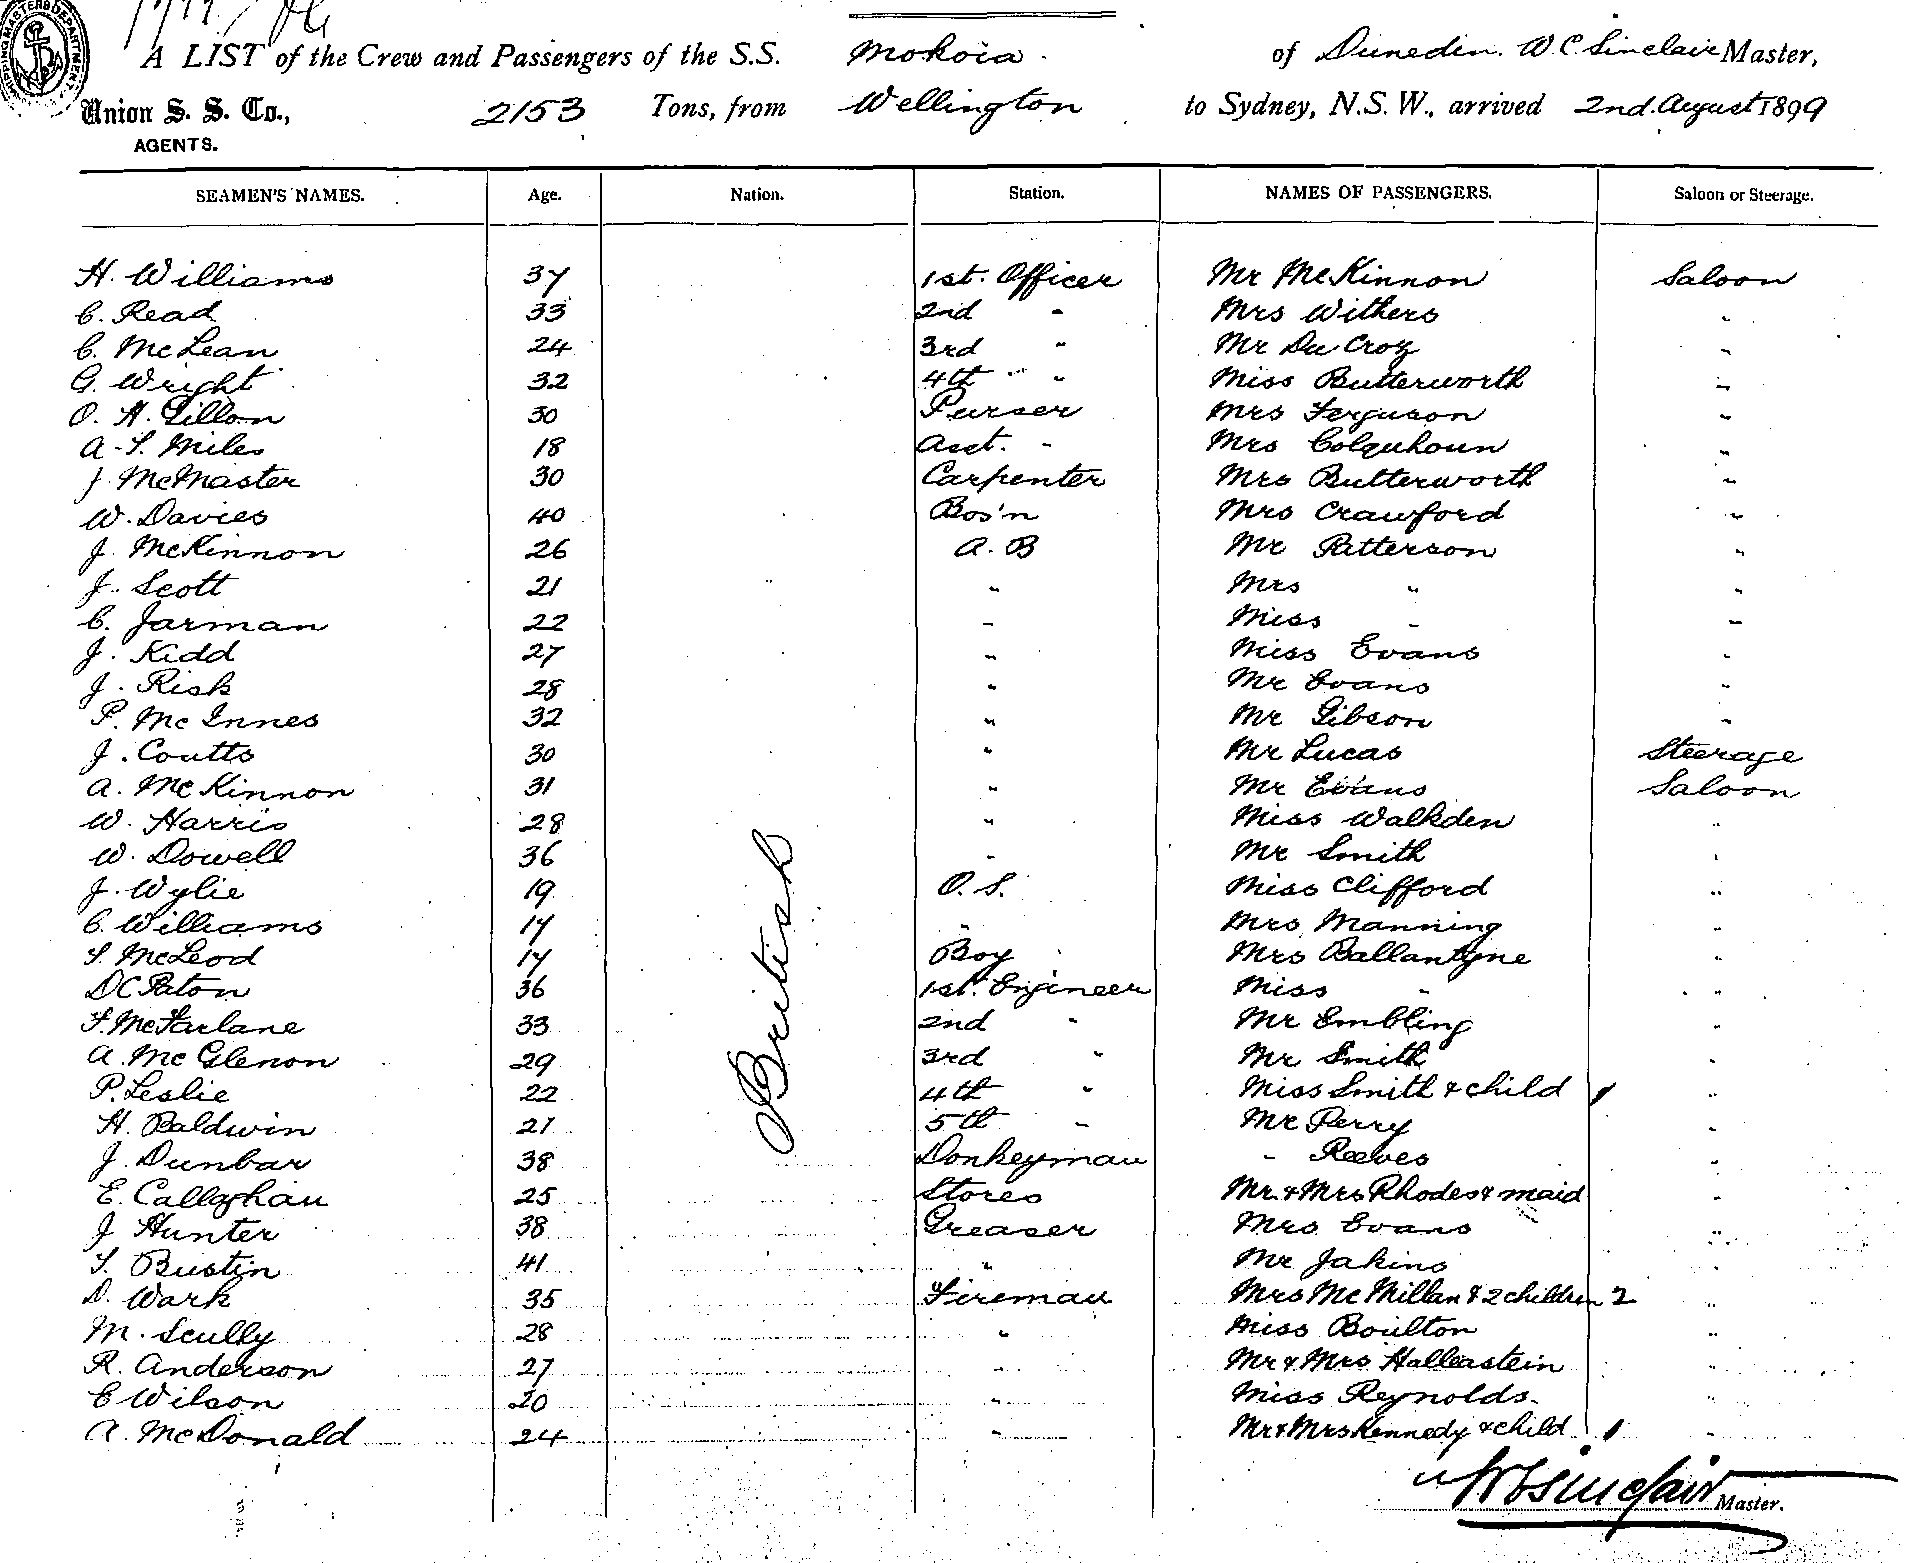 A LIST of the Crew and Passengers of the S.S. Mokoia of Dunedin. W.C. Sinclair Master,
Union S. S. Co., 2153 Tons, from Wellington to Sydney, N.S.W., arrived 2nd. August 1899
AGENTS.
SEAMEN'S NAMES. Age. Nation. Station. NAMES OF PASSENGERS. Saloon or Steerage.
H. Williams 37 1st. Officer Mr McKinnon Saloon
C. Read 33 2nd " Mrs Withers "
C. McLean 24 3rd " Mr Du Croz "
G. Wright 32 4th " " Miss Butterworth "
O. H. Gillon 30 Purser Mrs Ferguson "
A. S. Miles 18 Asst. " Mrs Colquhoun "
J McMaster 30 Carpenter Mrs Butterworth "
W. Davies 40 Bos'n Mrs Crawford "
J. McKinnon 26 A. B Mr Patterson "
J. Scott 21 " Mrs " "
C. Jarman 22 " Miss " "
J. Kidd 27 " Miss Evans "
J. Risk 28 " Mr Evans "
P. McInnes 32 " Mr Gibson "
J. Coutts 30 " Mr Lucas Steerage
A. McKinnon 31 " Mr Evans Saloon
W. Harris 28 " Miss Walkden "
W. Dowell 36 " Mr Smith "
J. Wylie 19 O. S. Miss Clifford "
C. Williams 17 " Mrs Manning "
S. McLeod 17 Boy Mrs Ballantyne "
D C Paton 36 1st. Engineer Miss " "
F. McFarlane 33 2nd " Mr Embling "
A. McGlenon 29 3rd " Mr Smith "
P. Leslie 22 4th " Miss Smith & child 1 "
H. Baldwin 21 British 5th " Mr Perry "
J. Dunbar 38 Donkeyman " Reeves "
E. Callaghan 25 Stores Mr & Mrs Rhodes & maid "
J Hunter 38 Greaser Mrs Evans "
T. Bustin 41 " Mr Jakins "
D. Wark 35 Fireman Mrs McMillan & 2 children 2 "
M. Scully 28 " Miss Boulton "
R. Anderson 27 " Mr & Mrs Hallenstein "
C Wilson 20 " Miss Reynolds. "
A. McDonald 24 " Mr & Mrs Kennedy & child 1 "
W C Sinclair Master.